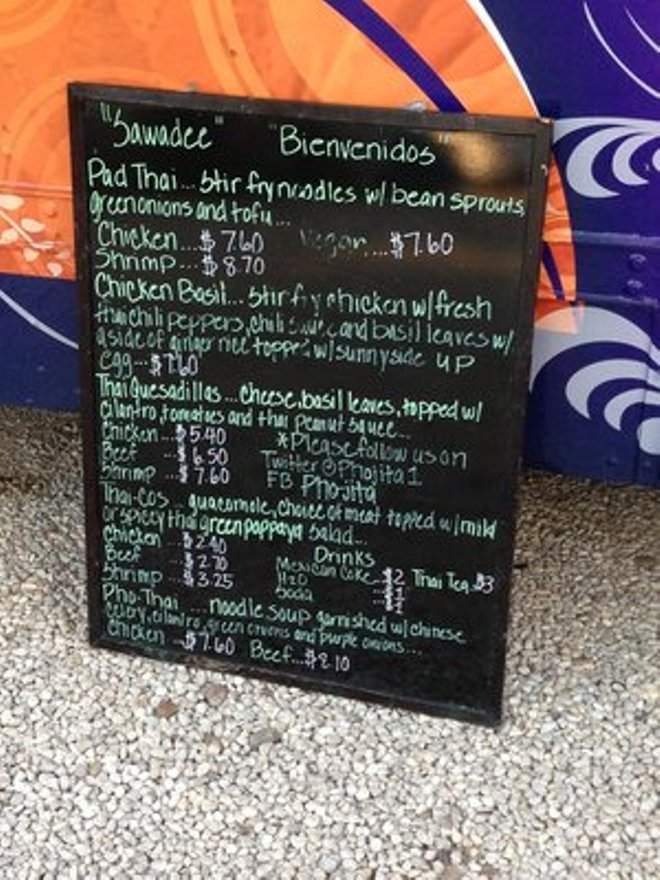 "Sawadee" "Bienvenidos"
Pad Thai... Stir fry noodles w/ bean sprouts,
green onions and tofu...
Chicken...$7.60 Vegan...$7.60
Shrimp...$8.70
Chicken Basil... Stir fry chicken w/ fresh
thai chili peppers, chili sauce and basil leaves w/
a side of ginger rice topped w/ sunny side up
egg...$7.60
Thai Quesadillas... cheese, basil leaves, topped w/
cilantro, tomatoes and thai peanut sauce...
Chicken...$5.40 *Please follow us on
Beef...$6.50 Twitter @Phojita1
Shrimp...$7.60 FB Phojita
Thai-cos... guacamole, choice of meat topped w/ mild
or spicy thai green pappaya salad...
Chicken...$2.40 Drinks
Beef...$2.70 Mexican Coke...$2 Thai Tea.$3
Shrimp...$3.25 H2O
Soda
Pho-Thai... noodle soup garnished w/ chinese
celery, cilantro, green onions and purple onions...
Chicken...$7.60 Beef...$8.10